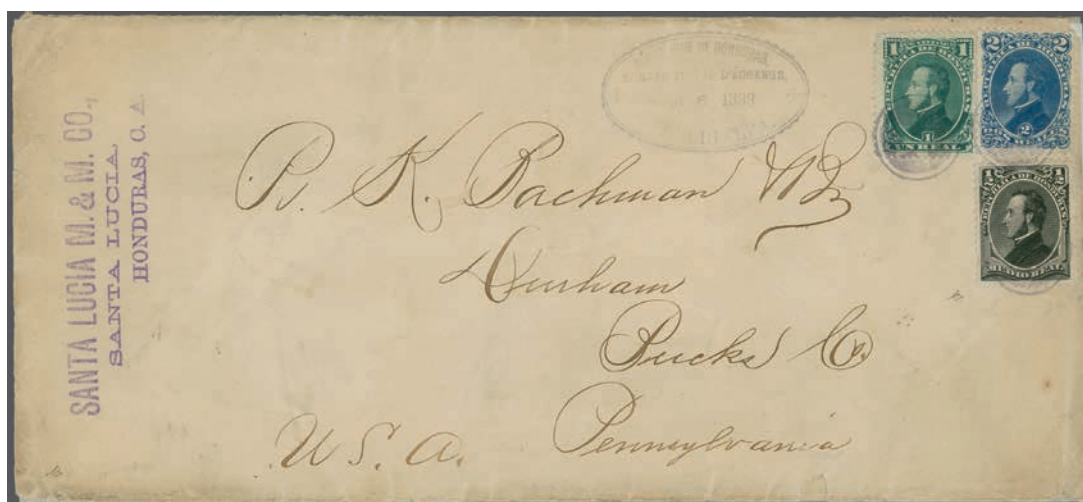 SANTA LUCIA M. & M. CO.,
SANTA LUCIA,
HONDURAS, C. A.
1 1
REPUBLICA DE HONDURAS
1
UN REAL
2 2
REPUBLICA DE HONDURAS
2
REALES
1/2 1/2
REPUBLICA DE HONDURAS
MEDIO REAL
Bachman
Durham
Bucks Co.
Pennsylvania
U. S. A.